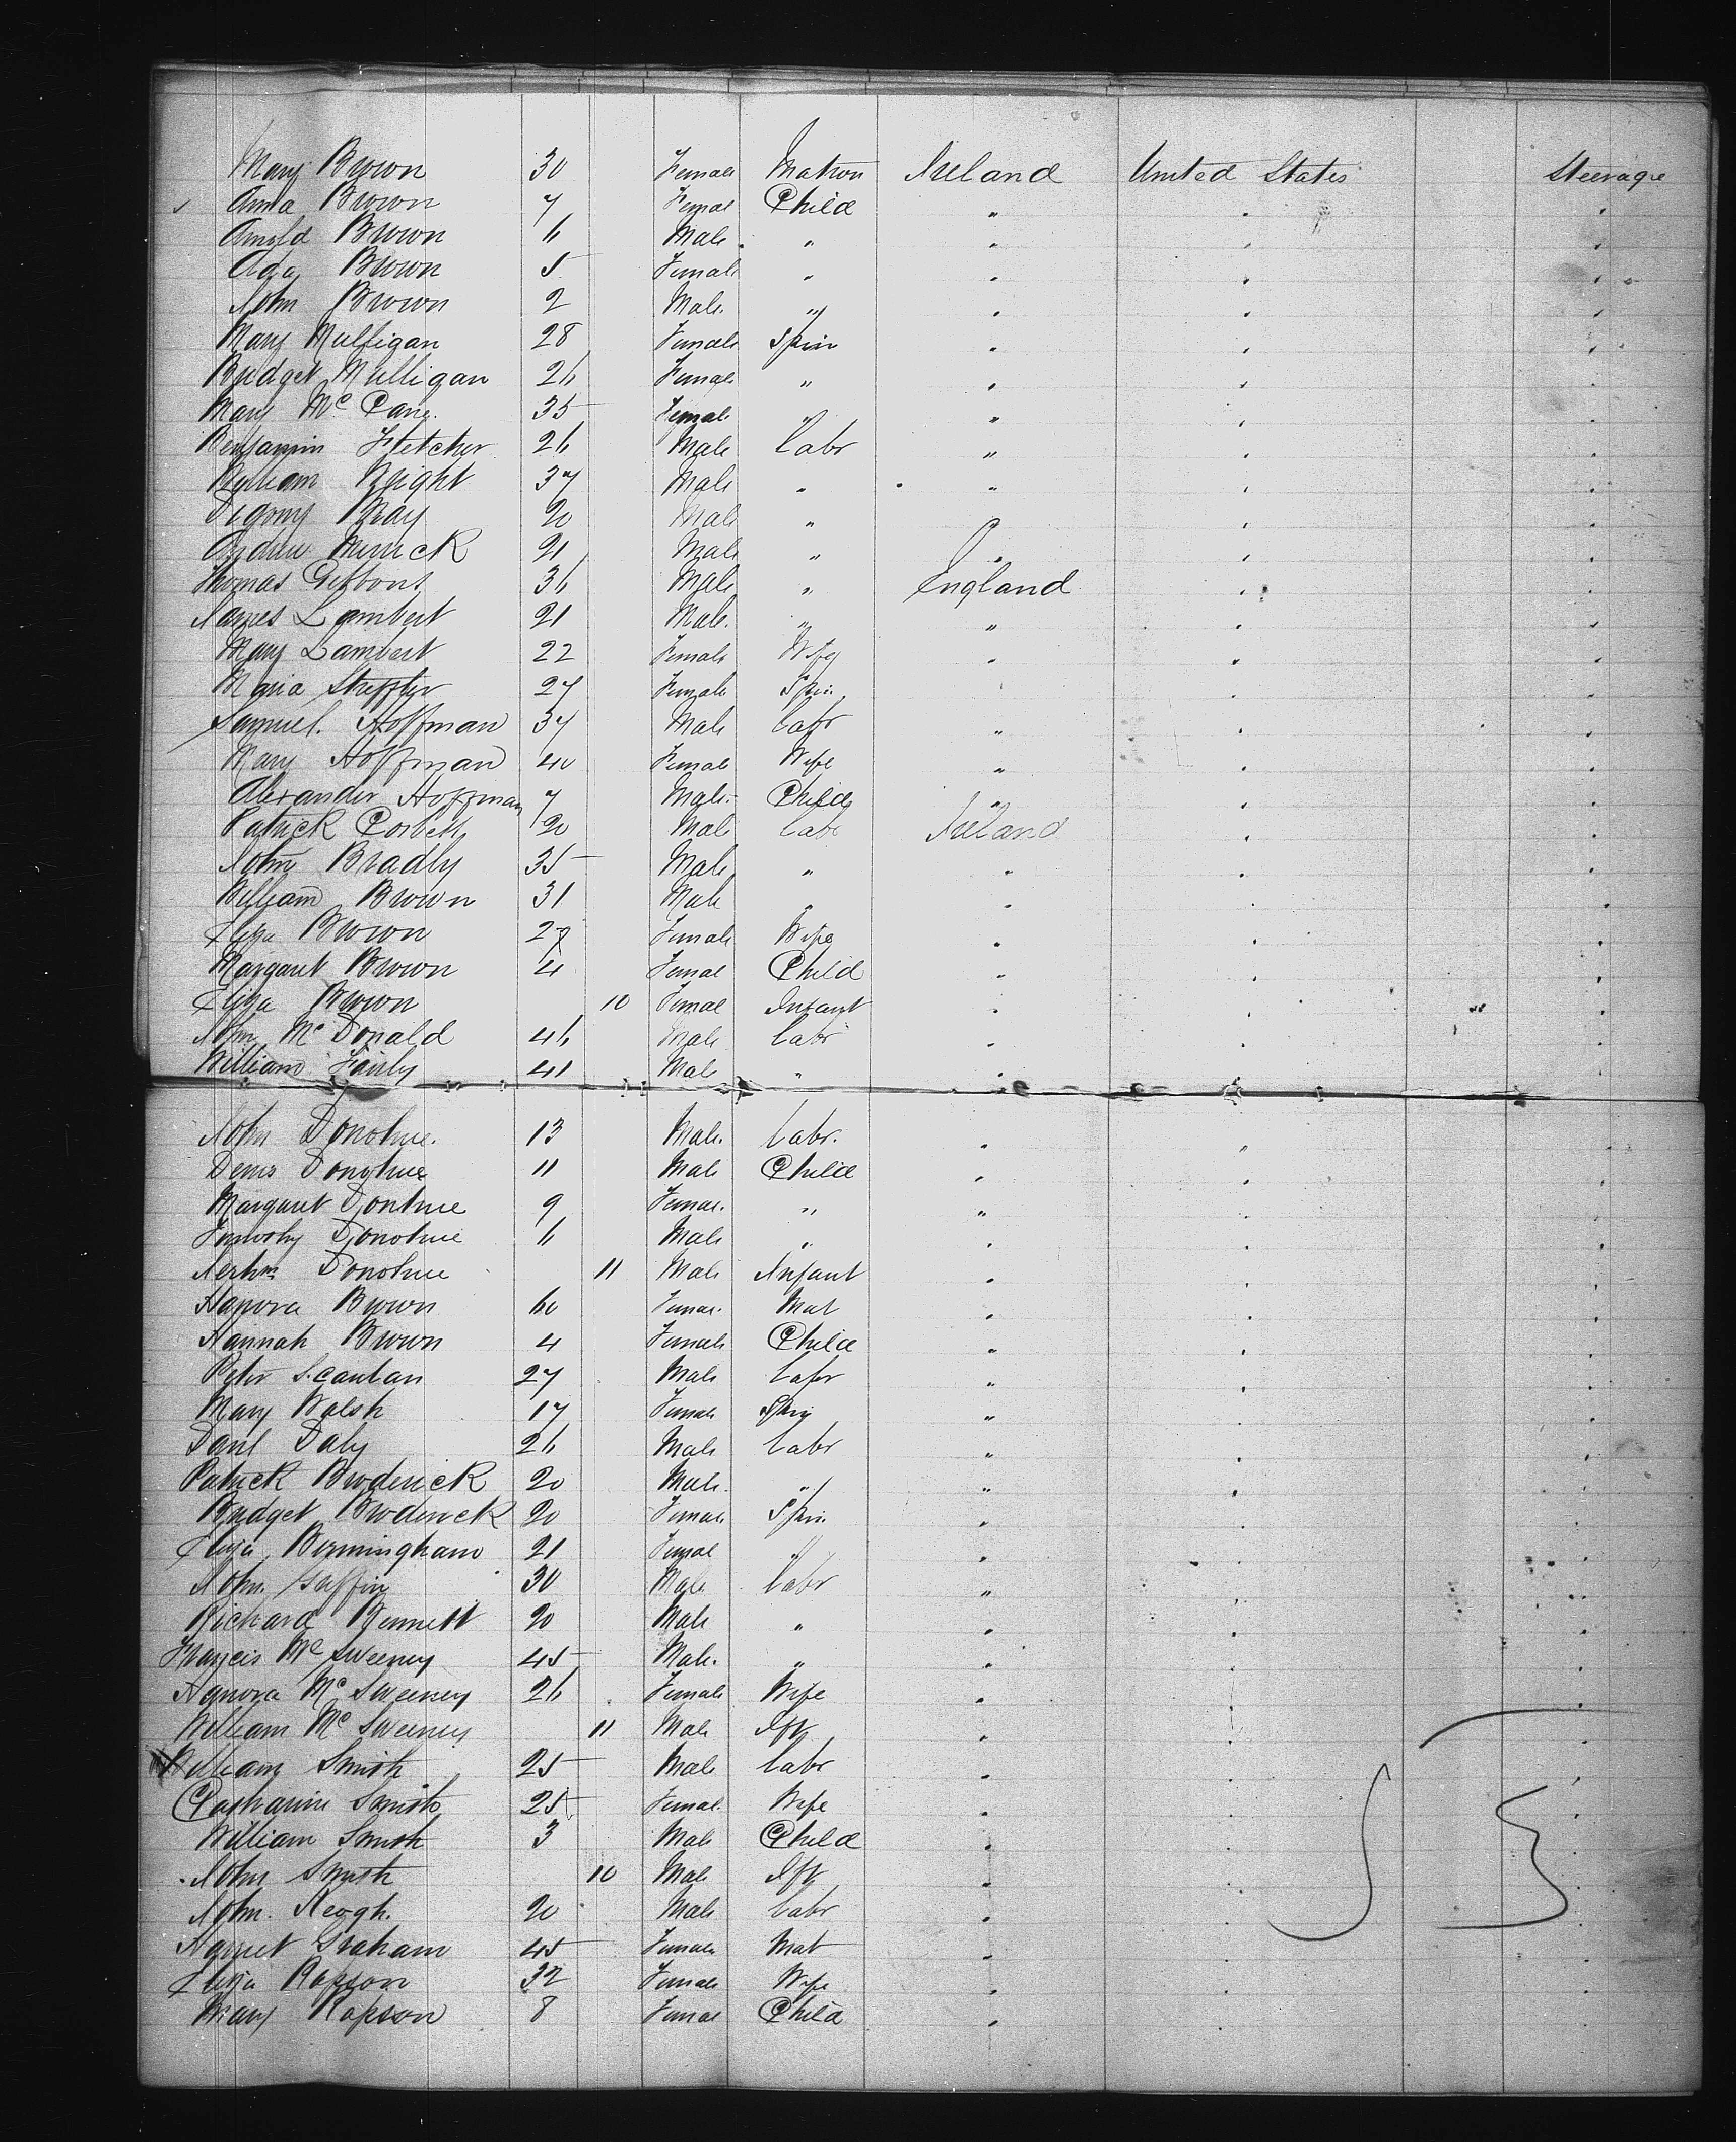 Mary Brown 30 Female Matron Ireland United States Steerage
Anna Brown 7 Femal Child " " "
Arnold Brown 6 Male " " " "
Ada Brown 5 Female " " " "
John Brown 2 Male. " " " "
Mary Mulligan 28 Female Spin " " "
Bridget Mulligan 26 Female " " " "
Mary Mc Cane. 35 Female " " " "
Benjamin Fletcher 26 Male Labr " " "
William Bright 37 Male " " " "
Digory Bray 20 Male " " " "
Andrew Mirrick 21 Male " " " "
Thomas Gibbons 36 Male " England " "
James Lambert 21 Male. " " " "
Mary Lambert 22 Female Wife " " "
Maria 27 Female Spin " " "
Samuel. Hoffman 37 Male Labr " " "
Mary Hoffman 40 Female Wife " " "
Alexander Hoffman 7 Male Child " " "
Patrick Corbett 20 Male Labr Ireland " "
John Bradly 35 Male " " " "
William Brown 31 Male " " " "
Eliza Brown 27 Female Wife " " "
Margaret Brown 4 Femal Child " " "
Eliza Brown 10 Femal Infant " " "
John Mc Donald 46 Male Labr " " "
William Fairly 41 Male " " " "
John Donohue. 13 Male. Labr. " " "
Denis Donohue 11 Male Child " " "
Margaret Donhue 9 Femal. " " " "
Timothy Donohue 6 Male " " " "
Donohue 11 Male Infant " " "
Hanora Brown 60 Femal. Mat " " "
Hannah Brown 4 Female Child " " "
Peter Scanlan 27 Male Labr " " "
Mary Walsh 17 Female Spin " " "
Danl Daly 26 Male Labr " " "
Patrick Broderick 20 Male. " " " "
Bridget Broderick 20 Female Spin " " "
Eliza Birmingham 21 Femal " " " "
John Griffin 30 Male Labr " " "
Richard Bennett 20 Male " " " "
Francis Mc Sweeney 45 Male. " " " "
Hanora Mc Sweeney 26 Female Wife " " "
William Mc Sweeney 11 Male Ift " " "
William Smith 25 Male Labr " " "
Catharine Smith 25 Femal Wife " " "
William Smith 3 Male Child " " "
John Smith 10 Male Ift " " "
John. Keogh. 20 Male Labr " " "
Harriet Graham 45 Female Mat " " "
Eliza Rapson 32 Female Wife " " "
Mary Rapson 8 Femal Child " " "